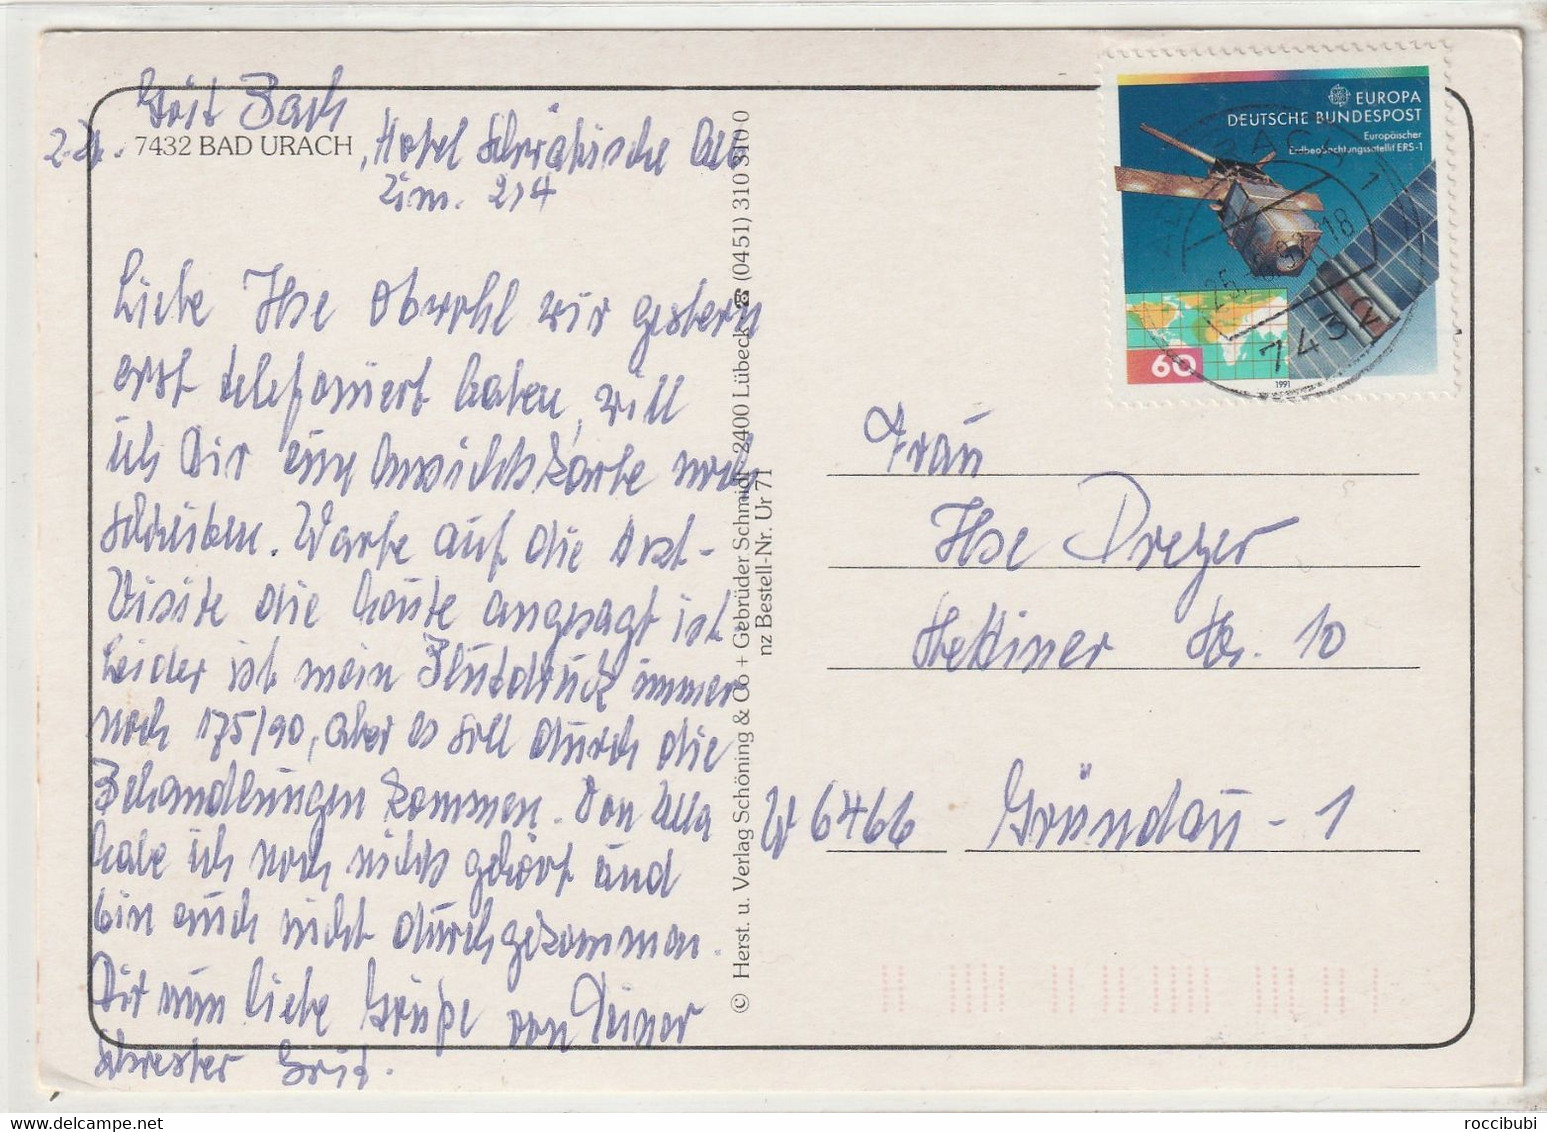 Grit Bach
z.Zt. 7432 BAD URACH , Hotel Schwäbische Alb
Zim. 214
Liebe Ilse Obwohl wir gestern
erst telefoniert haben, will
ich Dir eine Ansichtskarte noch
schreiben. Warte auf die Arzt-
Visite die heute angesagt ist
Leider ist mein Blutdruck immer
noch 175/90, aber es soll durch die
Behandlungen kommen. Von Ulla
habe ich noch nichts gehört und
bin auch nicht durchgekommen.
Dir nun liebe Grüße von Deiner
Schwester Grit.
© Herst. u. Verlag Schöning & Co + Gebrüder Schmidt 2400 Lübeck ☎ (0451) 310 310-0
nz Bestell-Nr. Ur 71
EUROPA
DEUTSCHE BUNDESPOST
Europäischer
Erdbeobachtungssatellit ERS-1
60
1991
7432
Frau
Ilse Dreyer
Stettiner Str. 10
W 6466 Gründau - 1
roccibubi